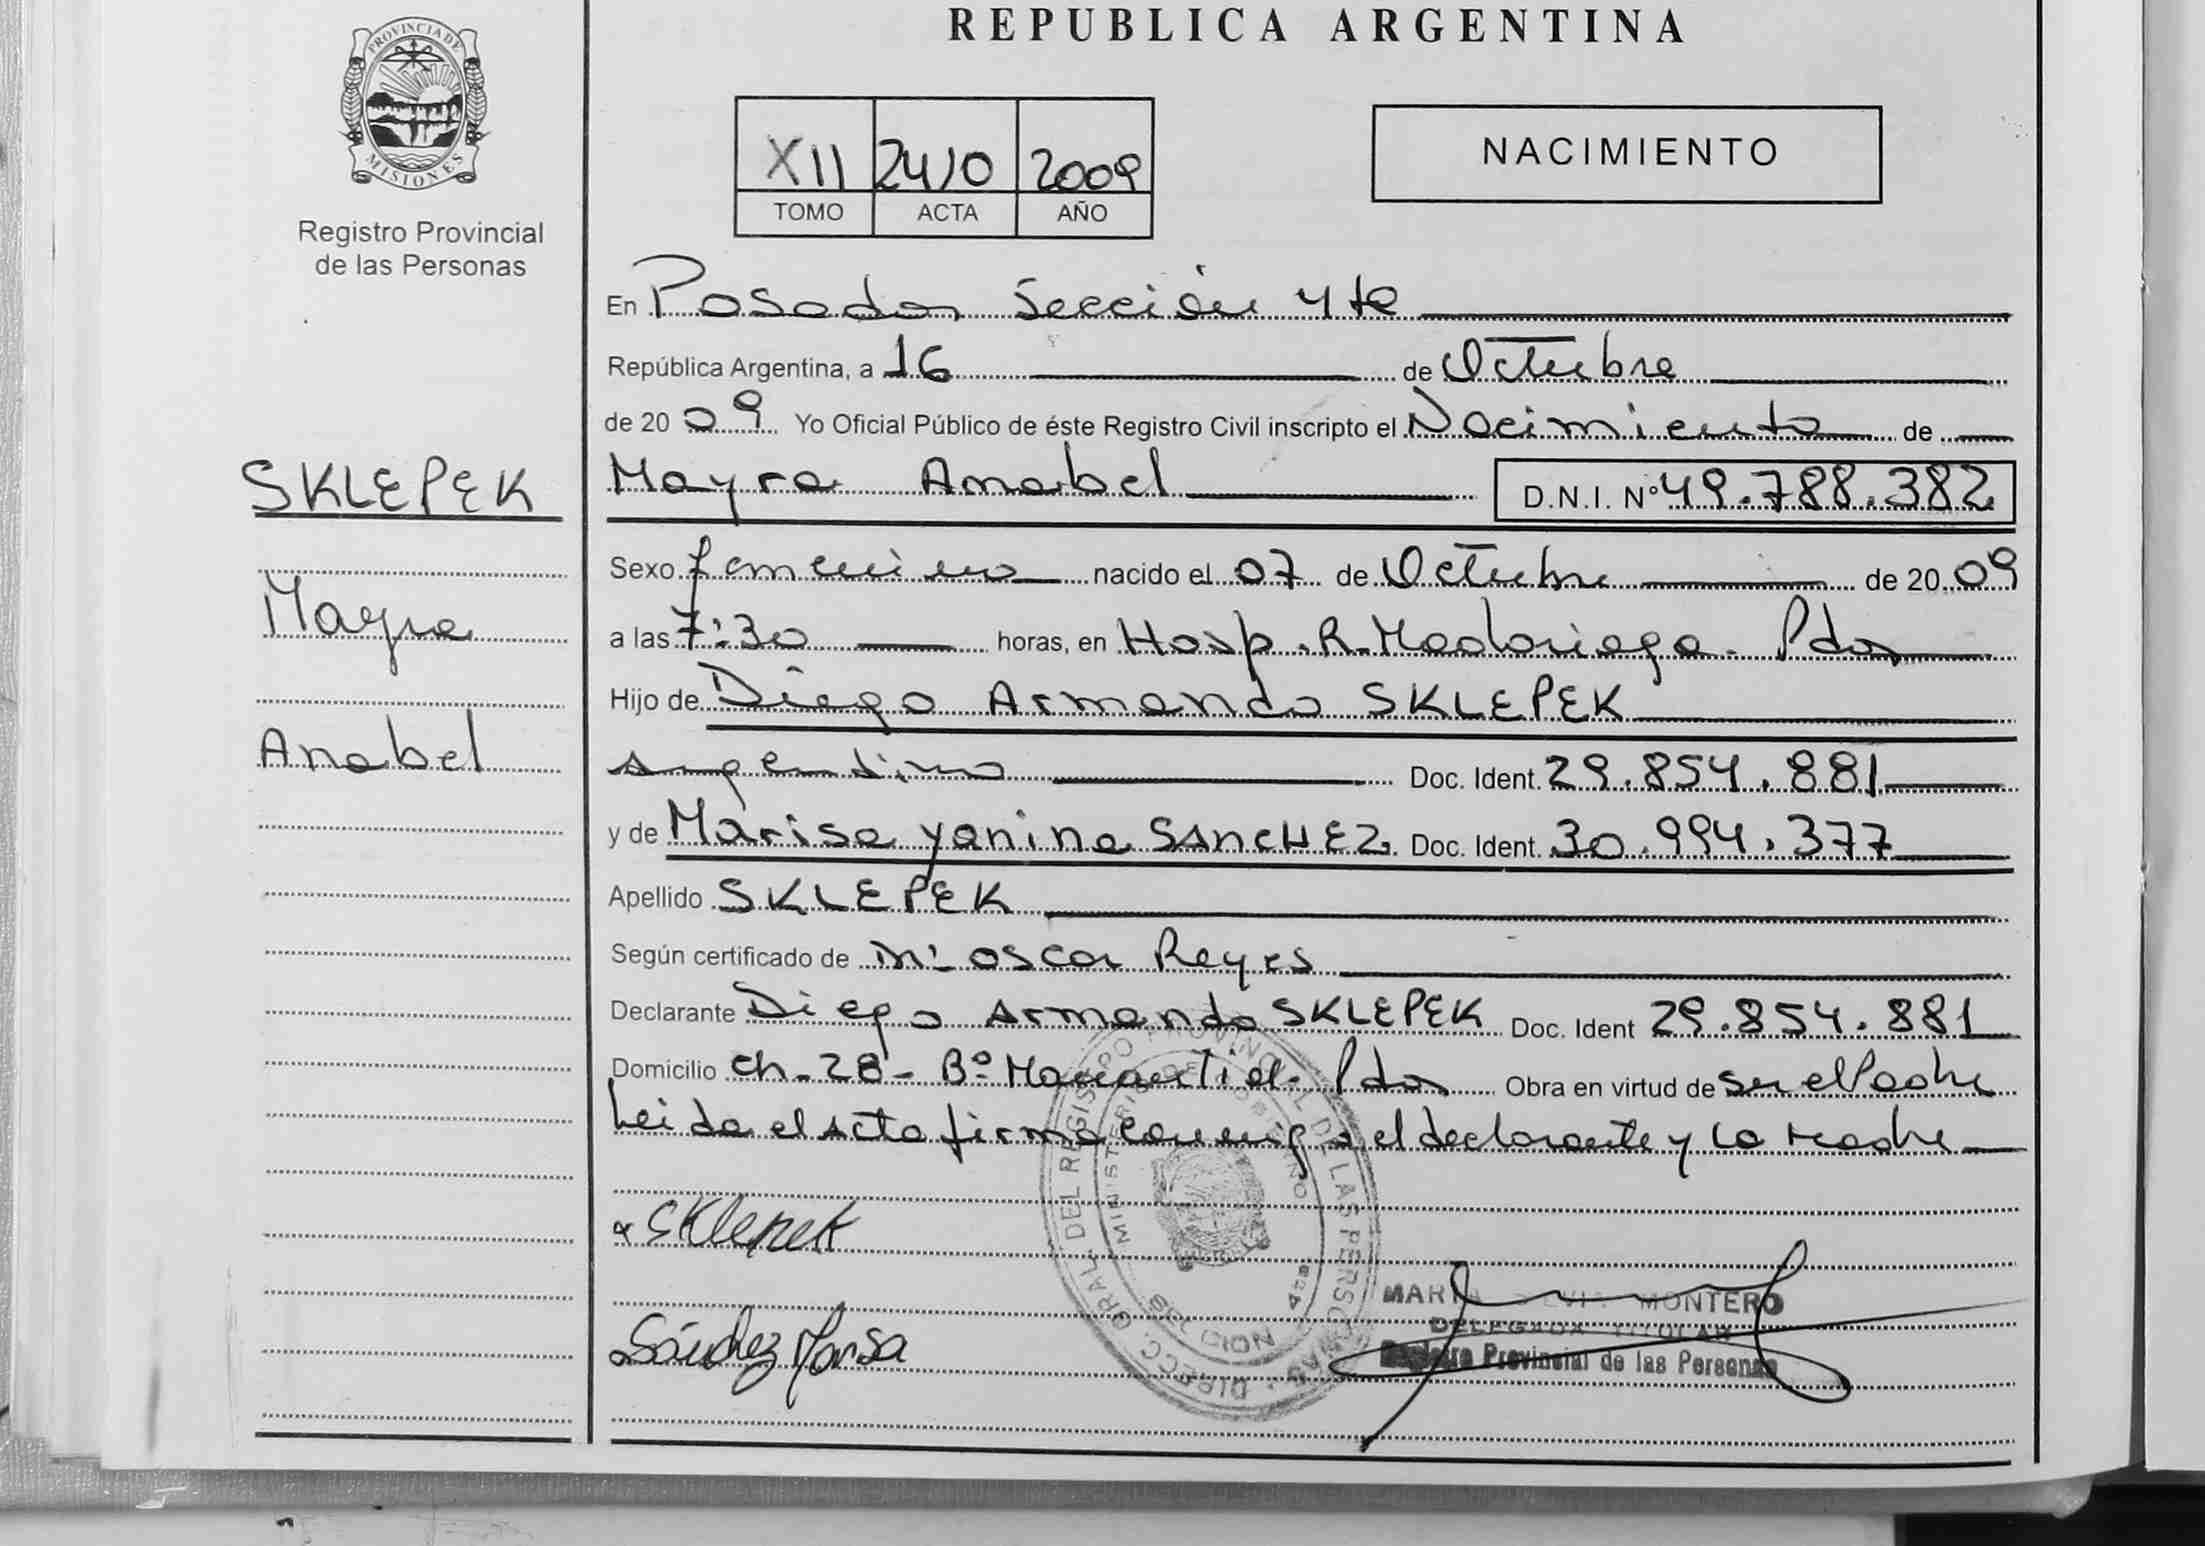 REPUBLICA ARGENTINA
PROVINCIA DE
MISIONES
Registro Provincial
de las Personas
XII 2410 2009
TOMO ACTA AÑO
NACIMIENTO
En Posadas Sección 4ta
República Argentina, a 16 de Octubre
de 2009 Yo Oficial Público de éste Registro Civil inscripto el Nacimiento de
SKLEPEK
Mayra Anabel D.N.I. Nº 49.788.382
Sexo femenino nacido el 07 de Octubre de 2009
Mayra
a las 7:30 horas, en Hosp. R. Madariaga. Pdas
Hijo de Diego Armando SKLEPEK
Anabel
Argentino Doc. Ident. 29.854.881
y de Marisa Yanina SANCHEZ Doc. Ident. 30.994.377
Apellido SKLEPEK
Según certificado de Oscar Reyes
Declarante Diego Armando SKLEPEK Doc. Ident 29.854.881
Domicilio Ch-28- Bº Manantial. Pdas Obra en virtud de ser el Padre
Leida el acta firma conmigo el declarante y la Madre
Sklepek
Sánchez Marisa
DIRECC. GRAL. DEL REGISTRO PROVINCIAL DE LAS PERSONAS
MINISTERIO DE GOBIERNO
MONTERO
DELEGADA TITULAR
Registro Provincial de las Personas